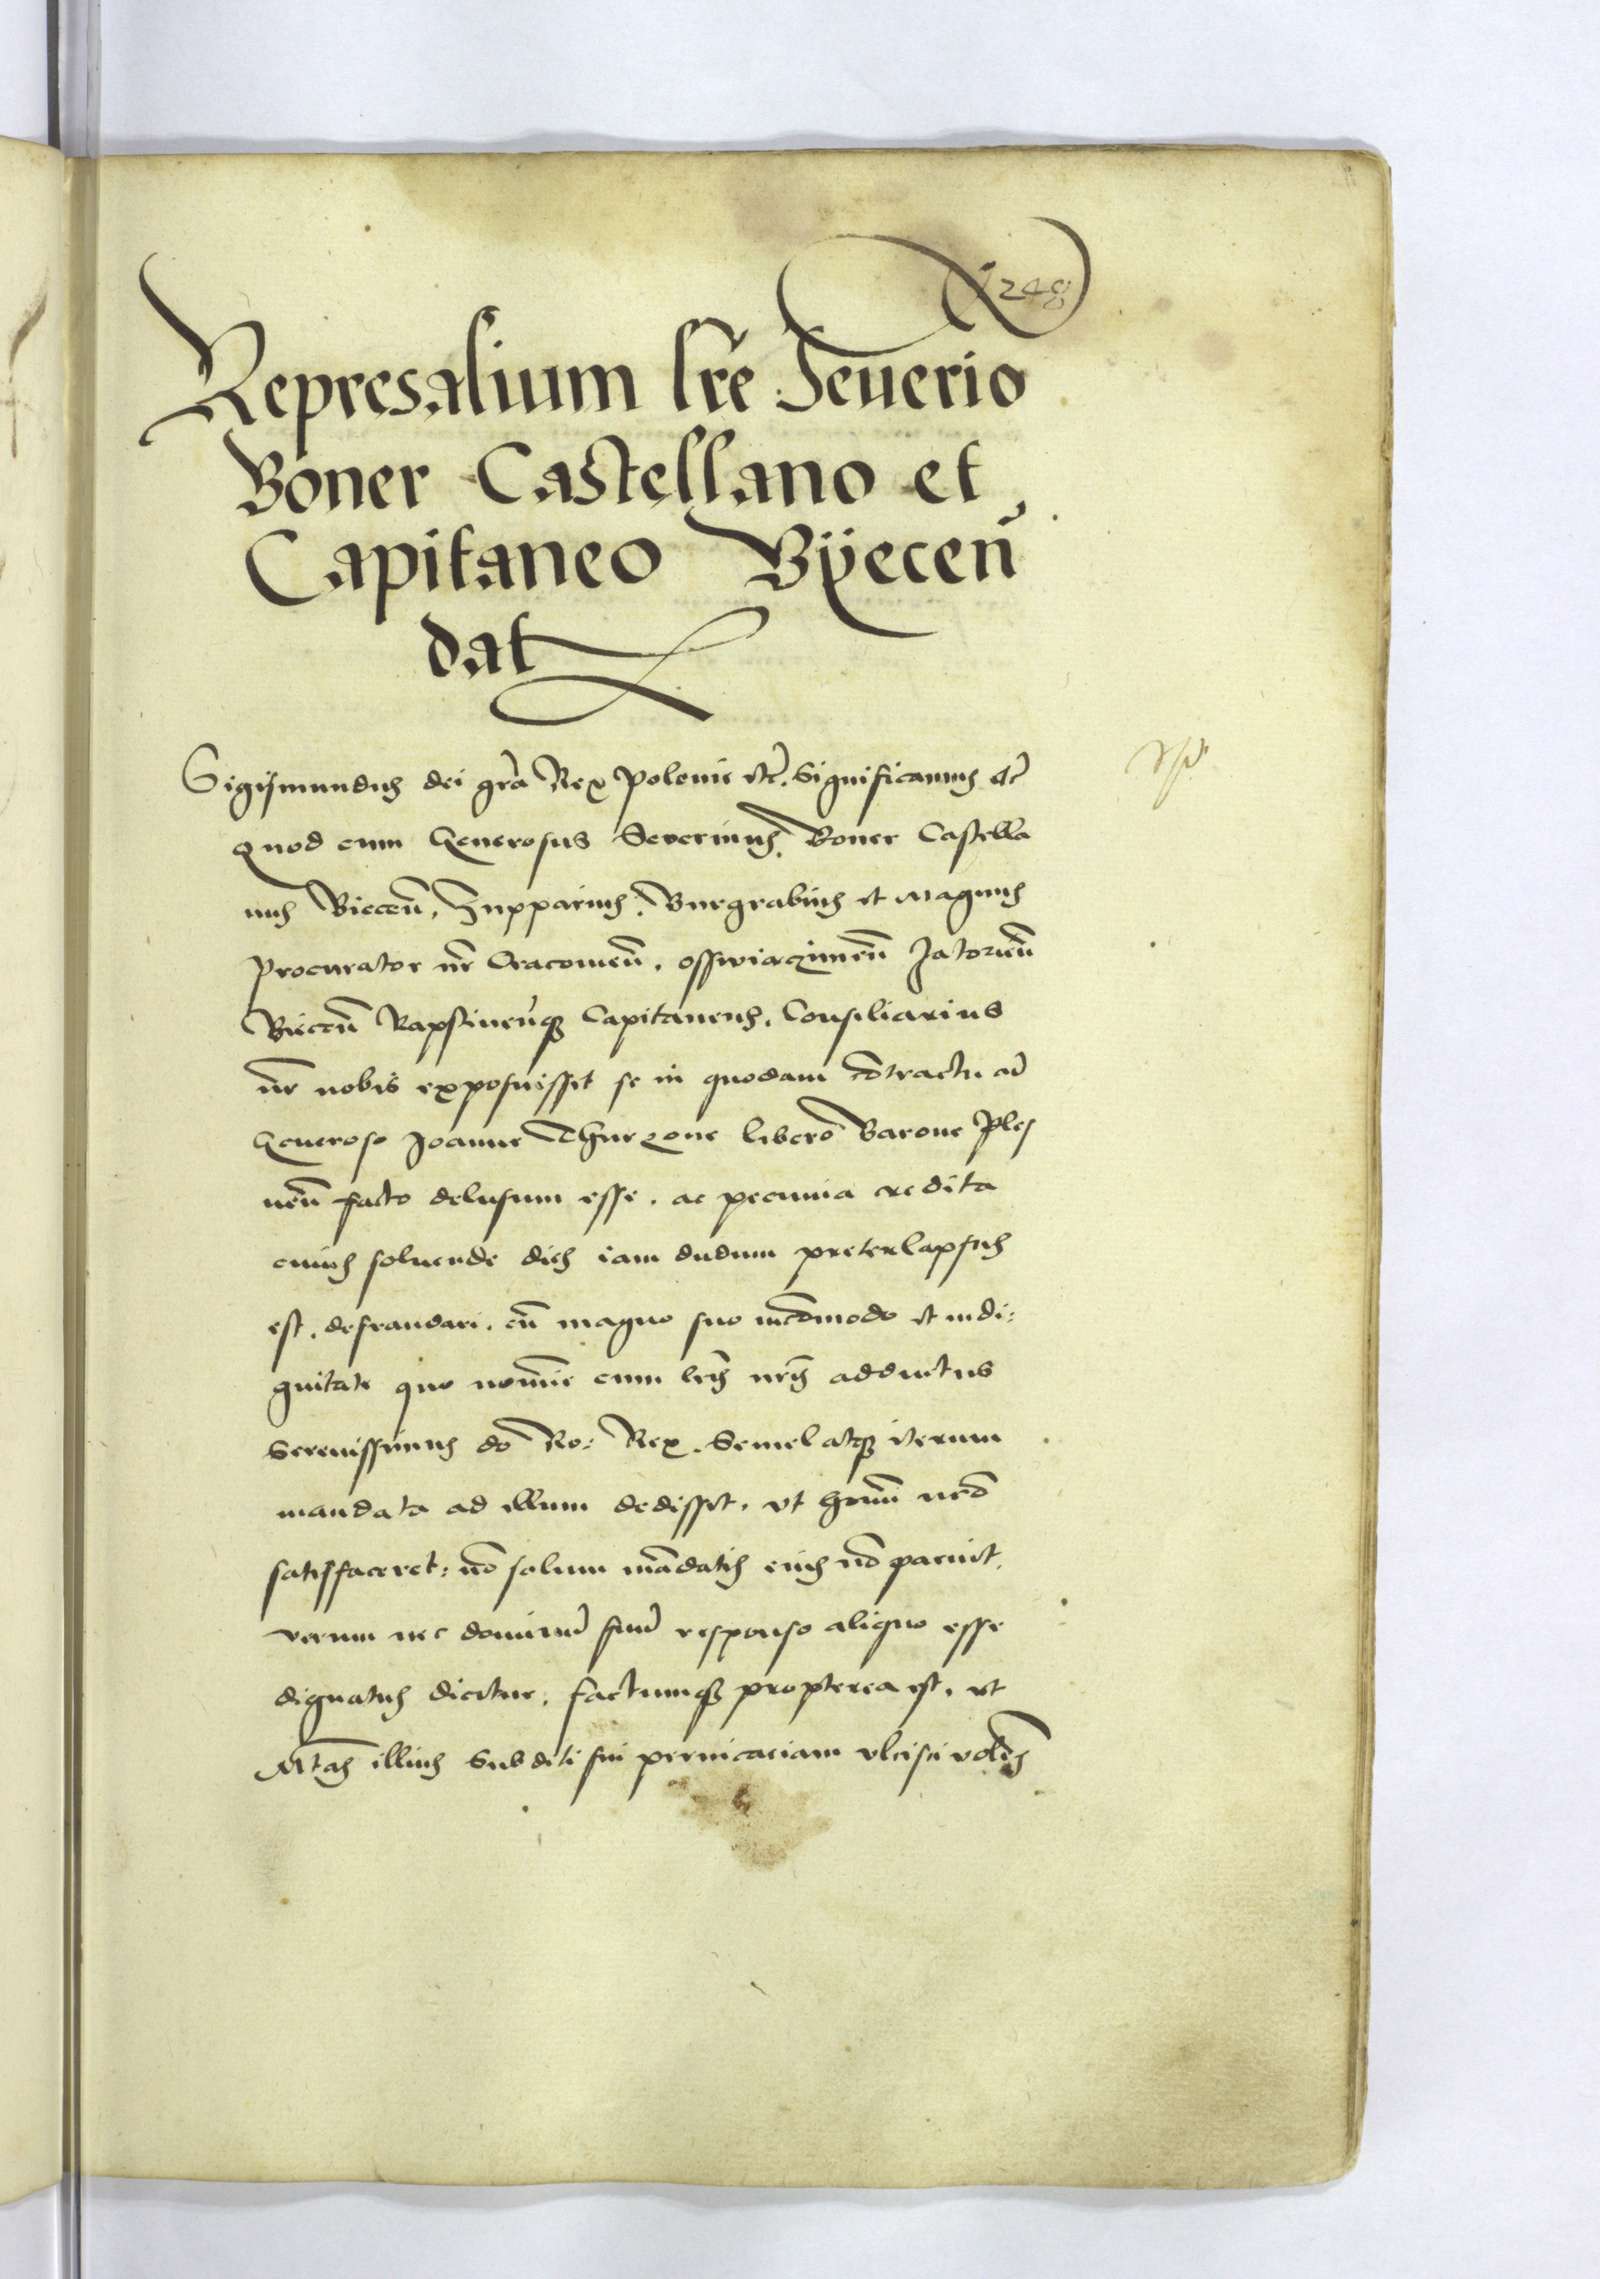 1248
Represalium lr̃e Seuerio
Boner Castellano et
Capitaneo Bÿeceñ
dat
Sigismundus dei gr̃a Rex Polonie etc̃. Significamus etc̃
quod cum Generosus Severinus Boner Castella
nus Bieceñ, Zupparius, Burgrabius et magnus
procurator nr̃ Cracovieñ. osswiaczimeñ Zatorieñ
Bieceñ Rapstineñqȝ Capitaneus. Consiliarius
nr̃ nobis exposuisset se in quodam cõtractu cũ
Generoso Joanne Thurzone libero Barone Ples
neñ facto delusum esse. ac pecunia credita
cuius soluende dies iam dudum preterlapsus
est. defraudari. cũ magno suo incõmodo et indi:
gnitate quo noĩe cum lr̃is nr̃is adductus
Serenissimus dõ Ro: Rex. Semel atqȝ iterum
mandata ad illum dedisset. ut hoĩ nr̃o
satisfaceret: nõ solum mãdatis eius nõ paruit.
verum nec dominũ suũ responso aliquo esse
dignatus dicitur. factumqȝ propterea est. ut
Mtas̃ illius Subditi sui pervicaciam ulcisci volẽs